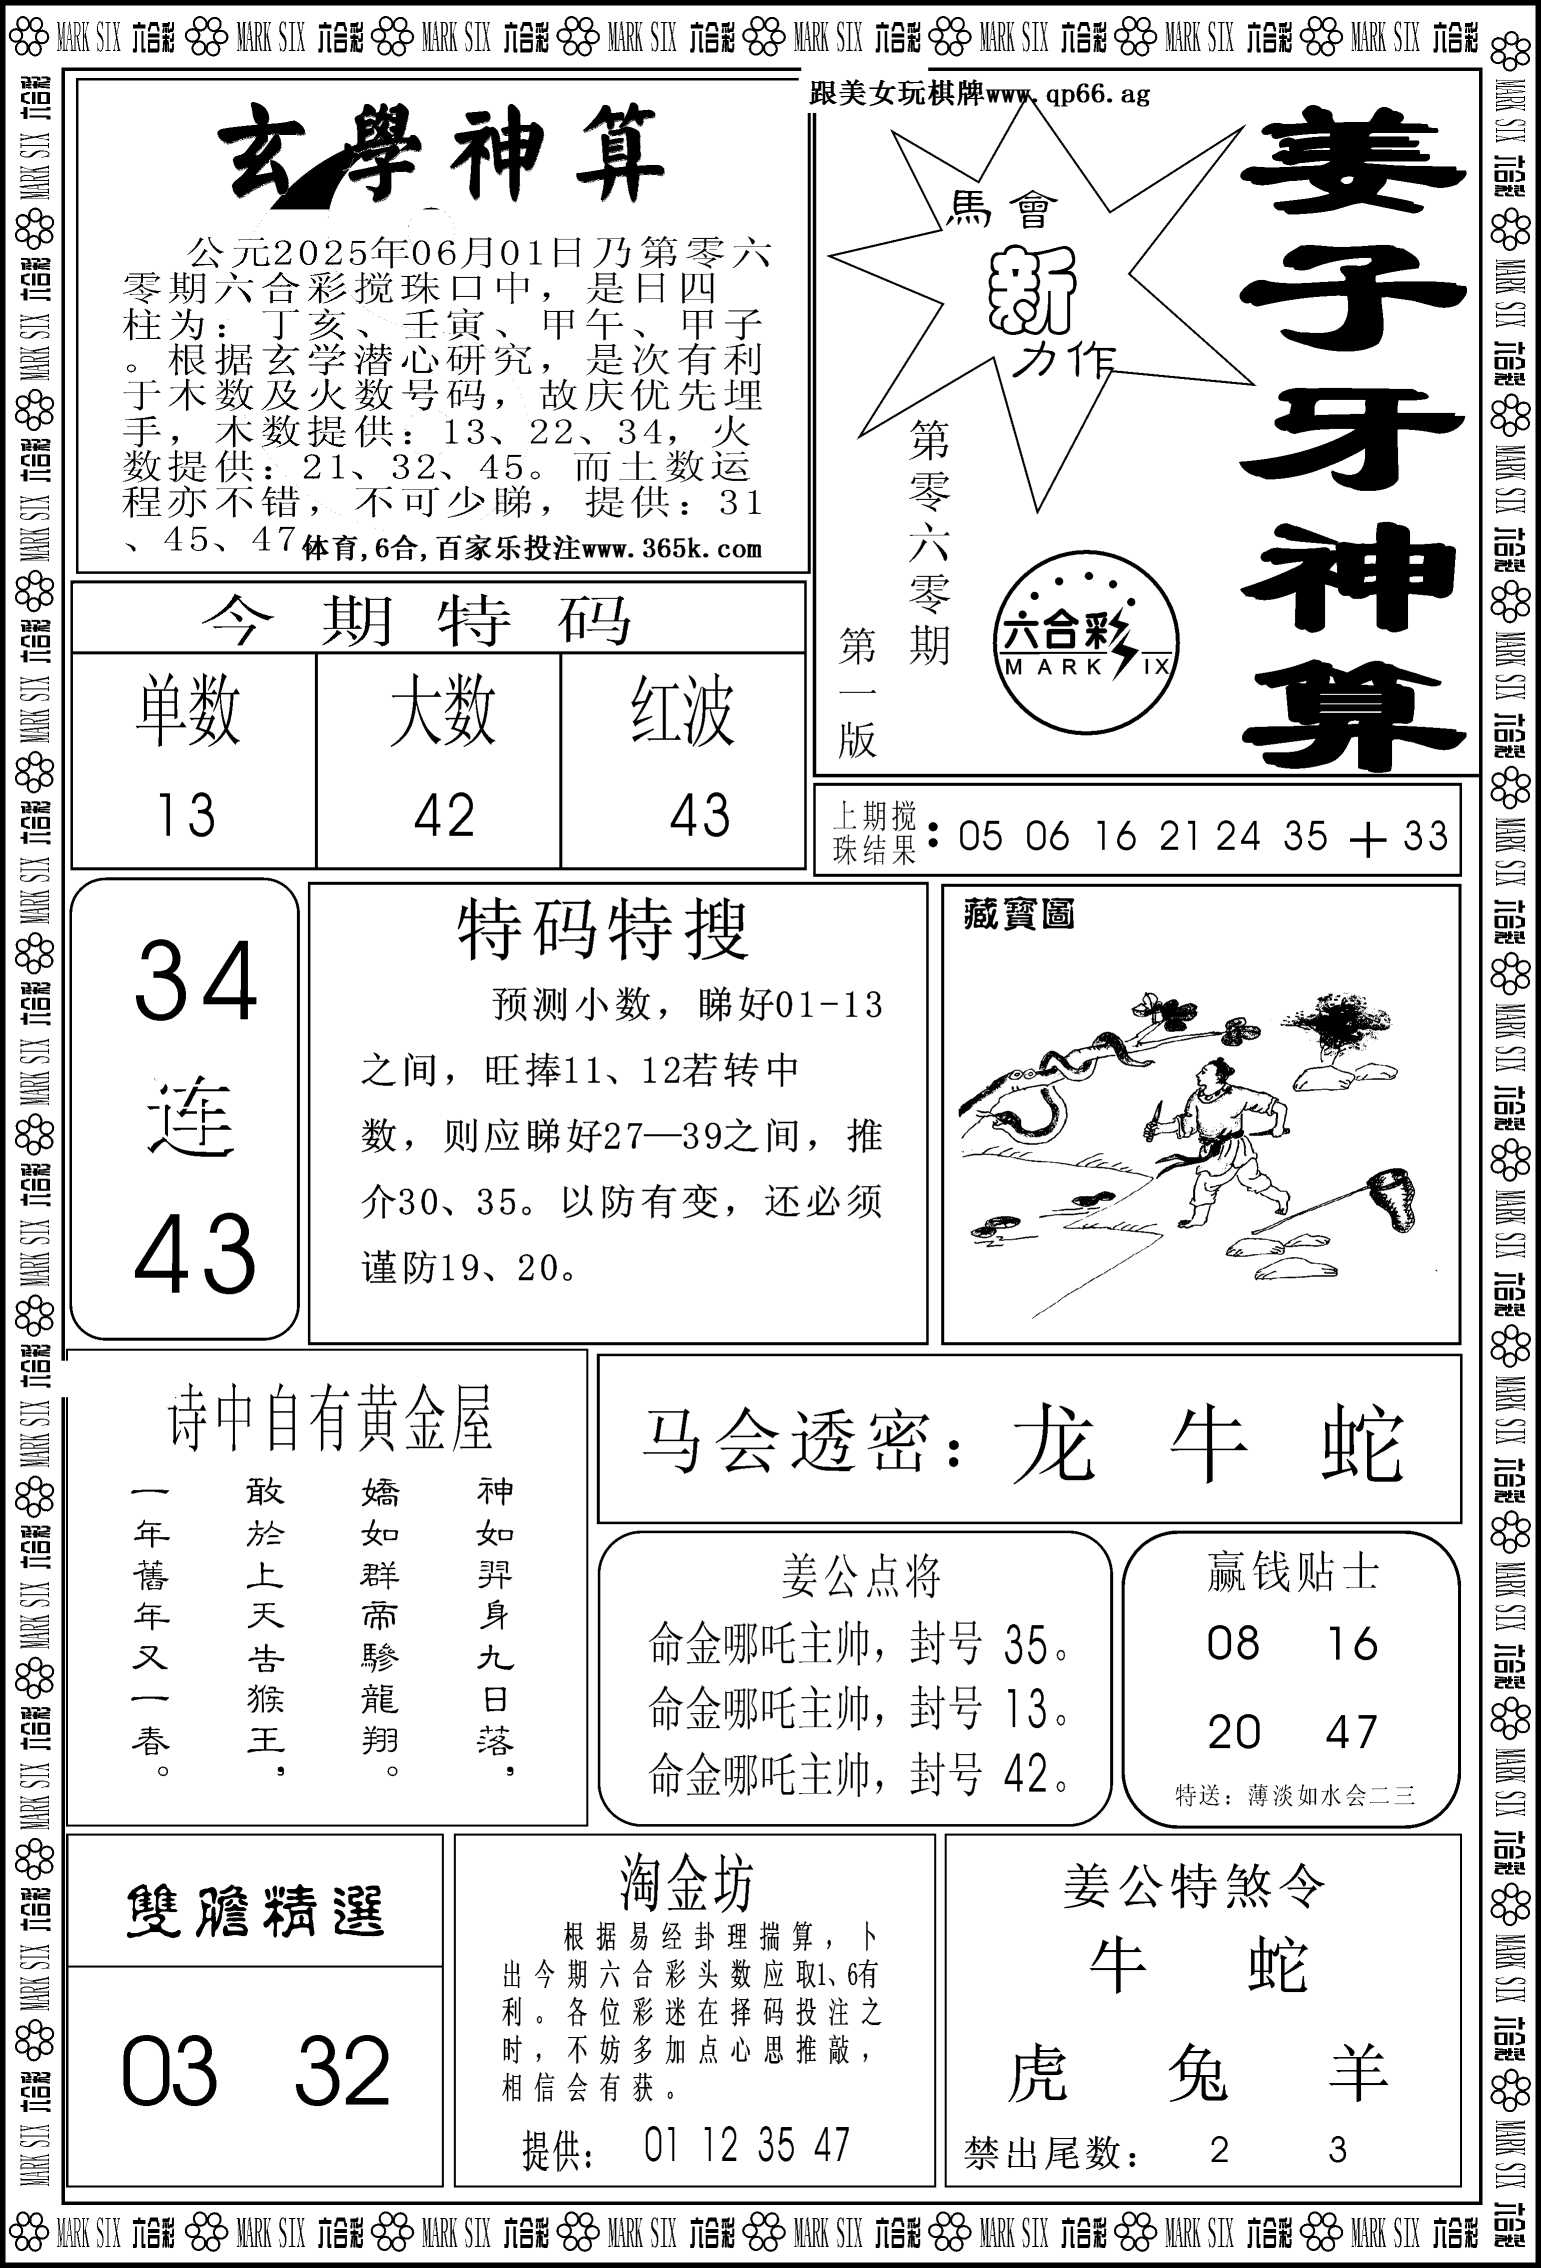 MARK SIX 六合彩 MARK SIX 六合彩 MARK SIX 六合彩 MARK SIX 六合彩 MARK SIX 六合彩 MARK SIX 六合彩 MARK SIX 六合彩 MARK SIX 六合彩
跟美女玩棋牌www.qp66.ag
玄學神算
公元2025年06月01日乃第零六
零期六合彩搅珠口中，是日四
柱为：丁亥、壬寅、甲午、甲子
。根据玄学潜心研究，是次有利
于木数及火数号码，故庆优先埋
手，木数提供：13、22、34，火
数提供：21、32、45。而土数运
程亦不错，不可少睇，提供：31
、45、47。
体育,6合,百家乐投注www.365k.com
馬會
新
力作
姜子牙神算
第零六零期
第一版
六合彩
MARK SIX
今期特码
单数 大数 红波
13 42 43
上期搅
珠结果
：05 06 16 21 24 35 + 33
34
连
43
特码特搜
预测小数，睇好01-13
之间，旺捧11、12若转中
数，则应睇好27—39之间，推
介30、35。以防有变，还必须
谨防19、20。
藏寶圖
诗中自有黄金屋
神如羿身九日落，
嬌如群帝驂龍翔。
敢於上天告猴王，
一年舊年又一春。
马会透密：龙 牛 蛇
姜公点将
命金哪吒主帅，封号 35。
命金哪吒主帅，封号 13。
命金哪吒主帅，封号 42。
赢钱贴士
08 16
20 47
特送：薄淡如水会二三
雙膽精選
03 32
淘金坊
根据易经卦理揣算，卜
出今期六合彩头数应取1、6有
利。各位彩迷在择码投注之
时，不妨多加点心思推敲，
相信会有获。
提供： 01 12 35 47
姜公特煞令
牛 蛇
虎 兔 羊
禁出尾数： 2 3
MARK SIX 六合彩 MARK SIX 六合彩 MARK SIX 六合彩 MARK SIX 六合彩 MARK SIX 六合彩 MARK SIX 六合彩 MARK SIX 六合彩 MARK SIX 六合彩